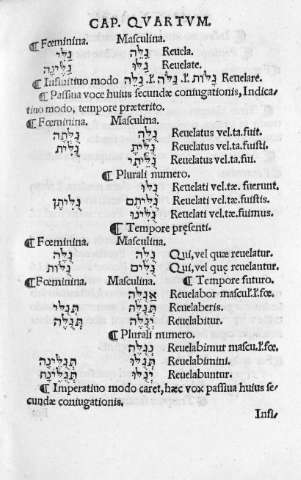 CAP. QVARTVM.
¶ Fœminina. Masculina.
גַּלִּי גַּלֵּה Reuela.
גַּלֶּינָה גַּלּוּ Reuelate.
¶ Infinitiuo modo גַּלֵּה .ł. גַּלֹּה .ł. גַּלּוֹת Reuelare.
¶ Passiua voce huius secundæ coniugationis, Indica-
tiuo modo, tempore præterito.
¶ Fœminina. Masculina.
גֻּלְּתָה גֻּלָּה Reuelatus vel.ta.fuit.
גֻּלֵּית גֻּלֵּיתָ Reuelatus vel.ta.fuisti.
גֻּלֵּיתִי Reuelatus vel.ta.fui.
¶ Plurali numero.
גֻּלּוּ Reuelati vel.tæ. fuerunt.
גֻּלֵּיתֶן גֻּלֵּיתֶם Reuelati vel.tæ.fuistis.
גֻּלֵּינוּ Reuelati vel.tæ.fuimus.
¶ Tempore pręsenti.
¶ Fœminina. Masculina.
גֻּלָּה גֻּלֶּה Qui,vel quæ reuelatur.
גֻּלּוֹת גֻּלִּים Qui,vel quę reuelantur.
¶ Fœminina. Masculina. ¶ Tempore futuro.
אֲגֻלֶּה Reuelabor mascul.ł.fœ.
תְּגֻלִּי תְּגֻלֶּה Reuelaberis.
תְּגֻלֶּה יְגֻלֶּה Reuelabitur.
¶ Plurali numero.
נְגֻלֶּה Reuelabimur mascu.ł.fœ.
תְּגֻלֶּינָה תְּגֻלּוּ Reuelabimini.
תְּגֻלֶּינָה יְגֻלּוּ Reuelabuntur.
¶ Imperatiuo modo caret, hæc vox passiua huius se-
cundæ coniugationis.
Infi-